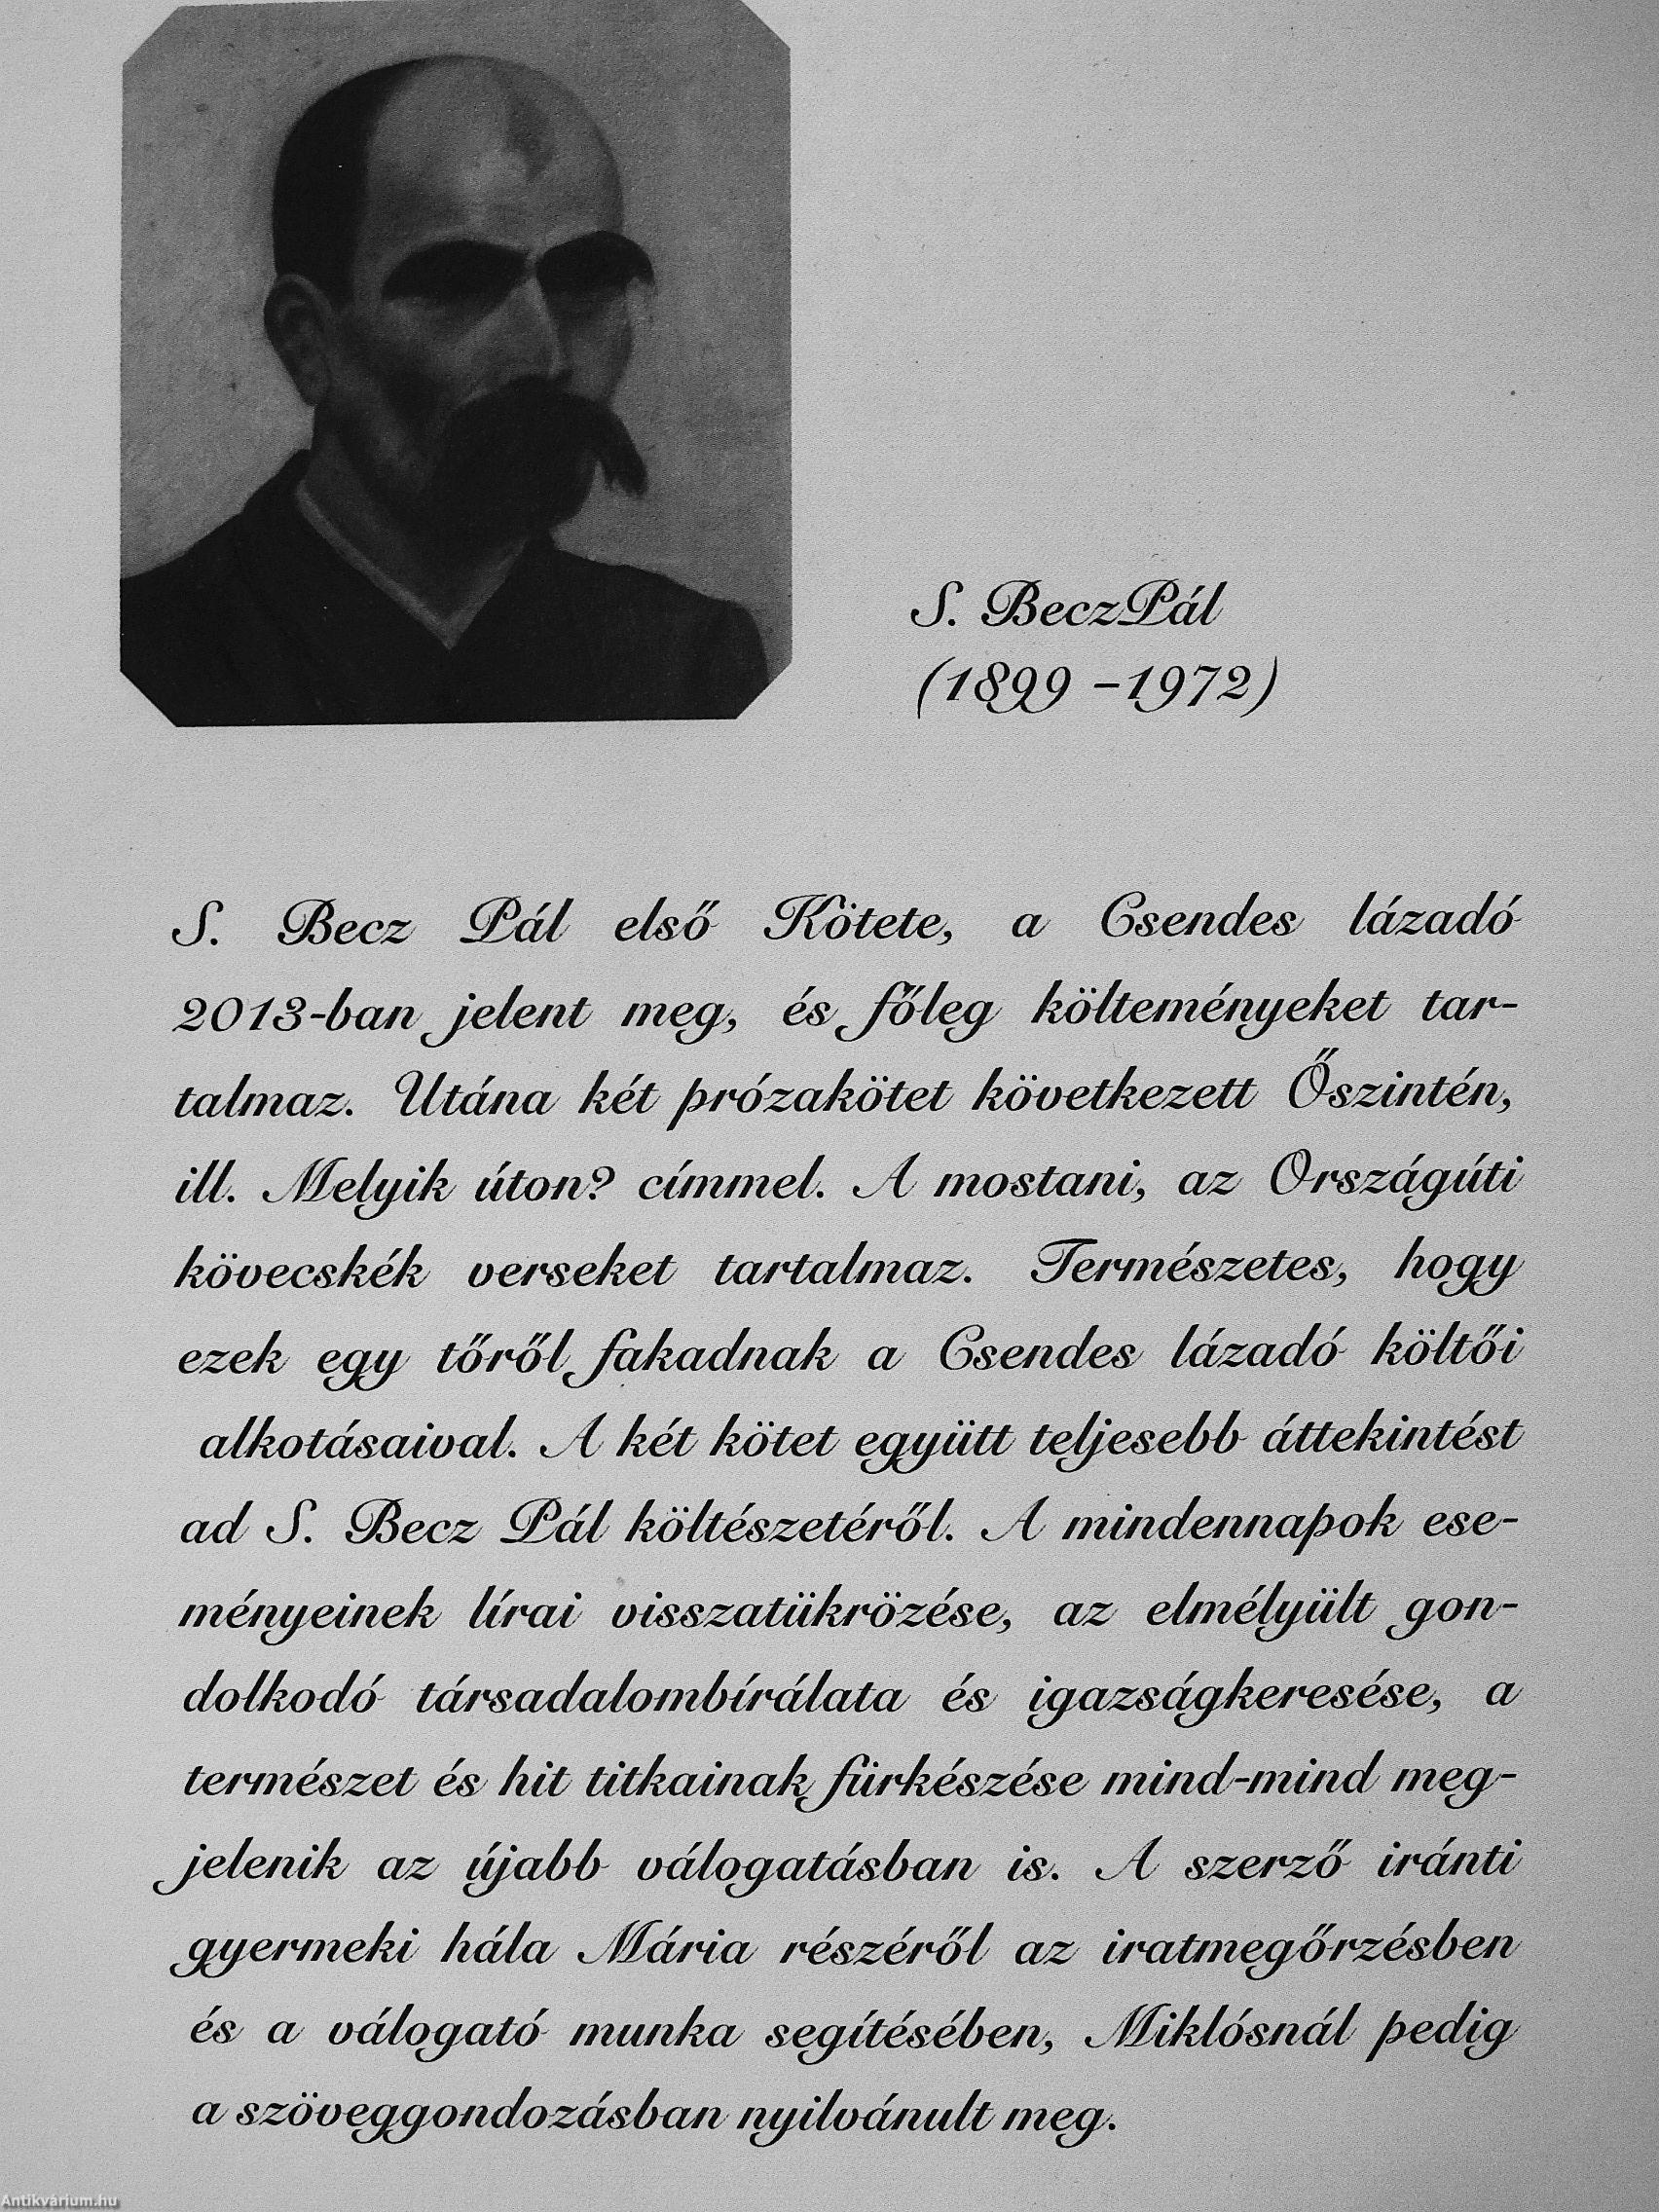 S. Becz Pál
(1899 –1972)
S. Becz Pál első Kötete, a Csendes lázadó
2013-ban jelent meg, és főleg költeményeket tar-
talmaz. Utána két prózakötet következett Őszintén,
ill. Melyik úton? címmel. A mostani, az Országúti
kövecskék verseket tartalmaz. Természetes, hogy
ezek egy tőről fakadnak a Csendes lázadó költői
alkotásaival. A két kötet együtt teljesebb áttekintést
ad S. Becz Pál költészetéről. A mindennapok ese-
ményeinek lírai visszatükrözése, az elmélyült gon-
dolkodó társadalombírálata és igazságkeresése, a
természet és hit titkainak fürkészése mind-mind meg-
jelenik az újabb válogatásban is. A szerző iránti
gyermeki hála Mária részéről az iratmegőrzésben
és a válogató munka segítésében, Miklósnál pedig
a szöveggondozásban nyilvánult meg.
Antikvárium.hu